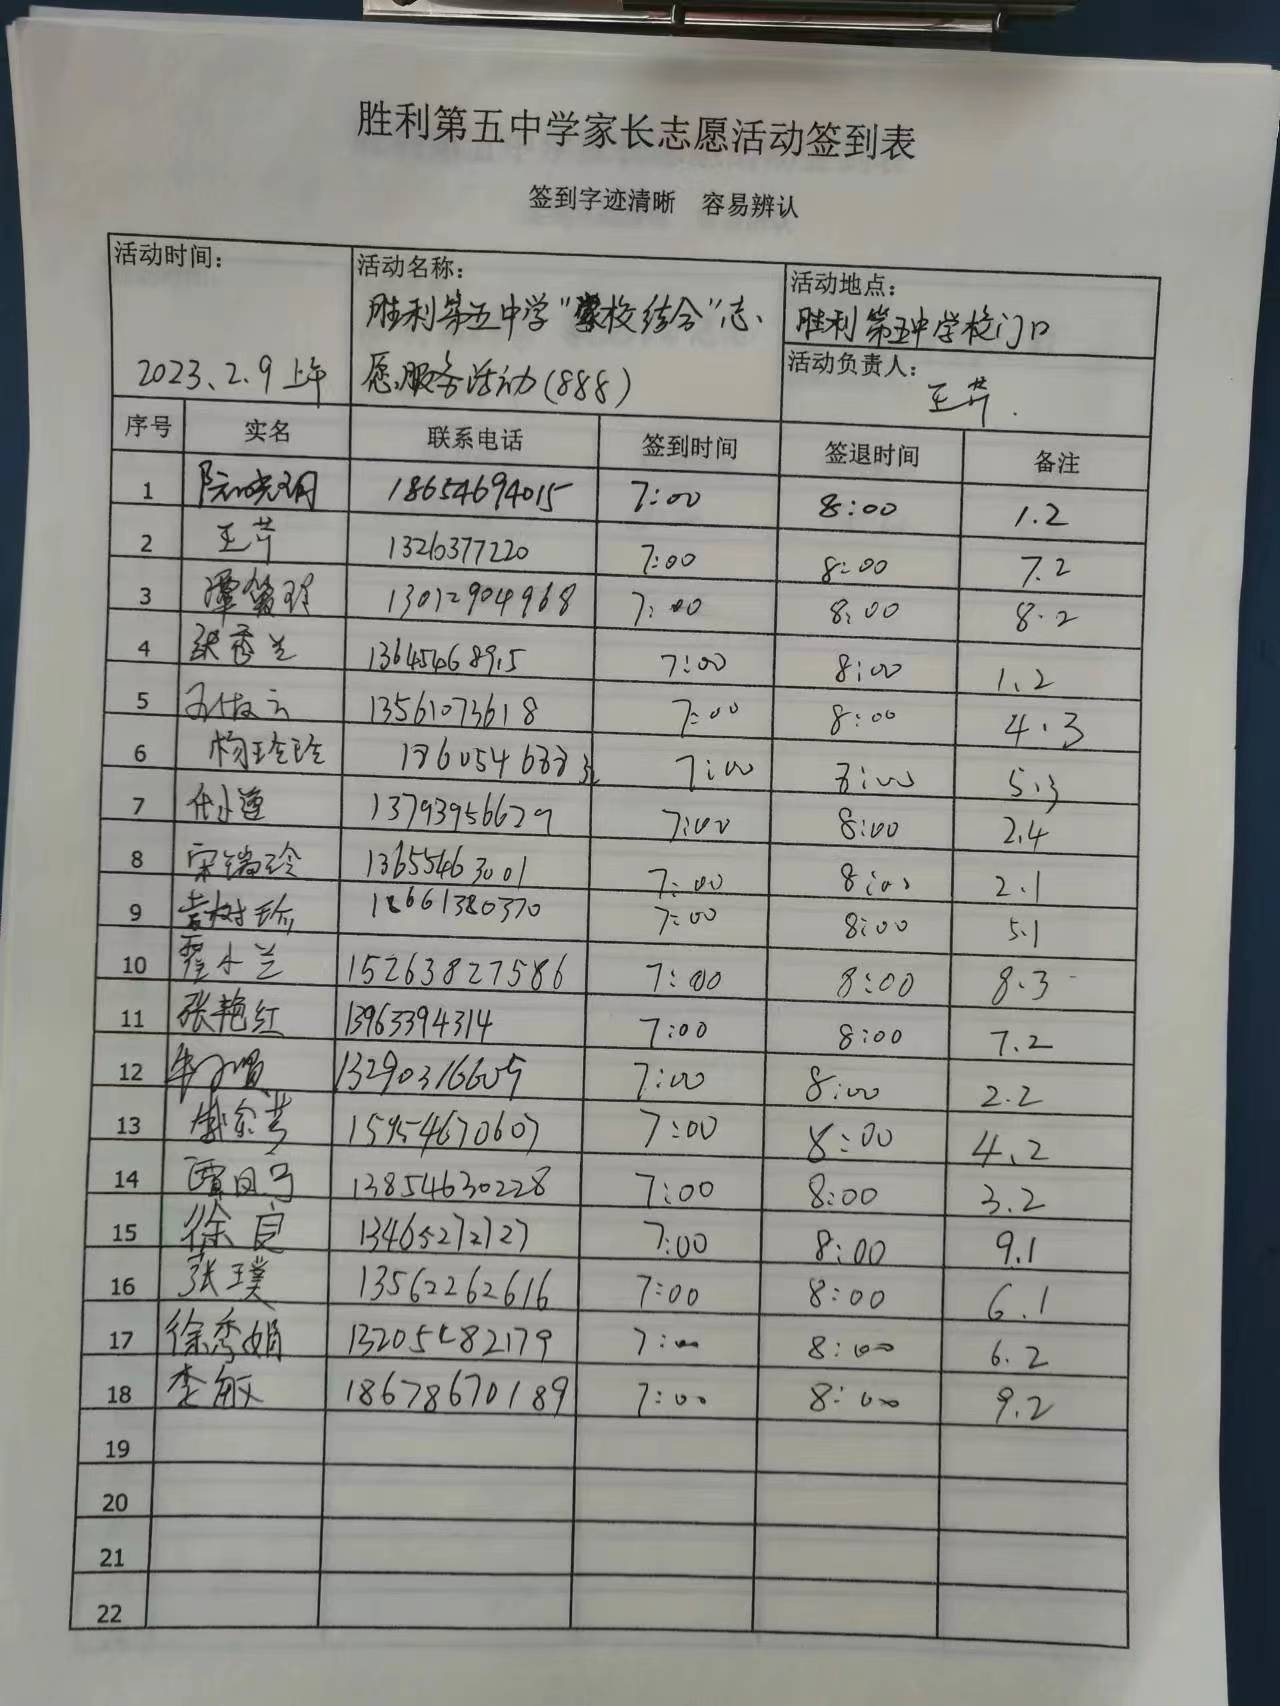 胜利第五中学家长志愿活动签到表
签到字迹清晰 容易辨认
活动时间：
2023、2.9上午
活动名称：
胜利第五中学“家校结合”志
愿服务活动(888)
活动地点：
胜利第五中学校门口
活动负责人：
王芹.
序号 实名 联系电话 签到时间 签退时间 备注
1 阮晓娟 18654694015 7:00 8:00 1.2
2 王芹 1326377220 7:00 8:00 7.2
3 13012904968 7:00 8:00 8.2
4 张秀兰 7:00 8:00 1、2
5 13561073618 7:00 8:00 4.3
6 杨玲玲 7:00 8:00 5.3
7 13793956629 7:00 8:00 2.4
8 宋瑞玲 13655463001 7:00 8:00 2.1
9 袁树珍 18661380370 7:00 8:00 5.1
10 翟小兰 15263827586 7:00 8:00 8.3
11 张艳红 13963394314 7:00 8:00 7.2
12 13290316609 7:00 8:00 2.2
13 15954670607 7:00 8:00 4.2
14 13854630228 7:00 8:00 3.2
15 徐良 13465272727 7:00 8:00 9.1
16 张璞 13562262616 7:00 8:00 6.1
17 徐秀娟 13205482179 7:00 8:00 6.2
18 李敏 18678670189 7:00 8:00 9.2
19
20
21
22